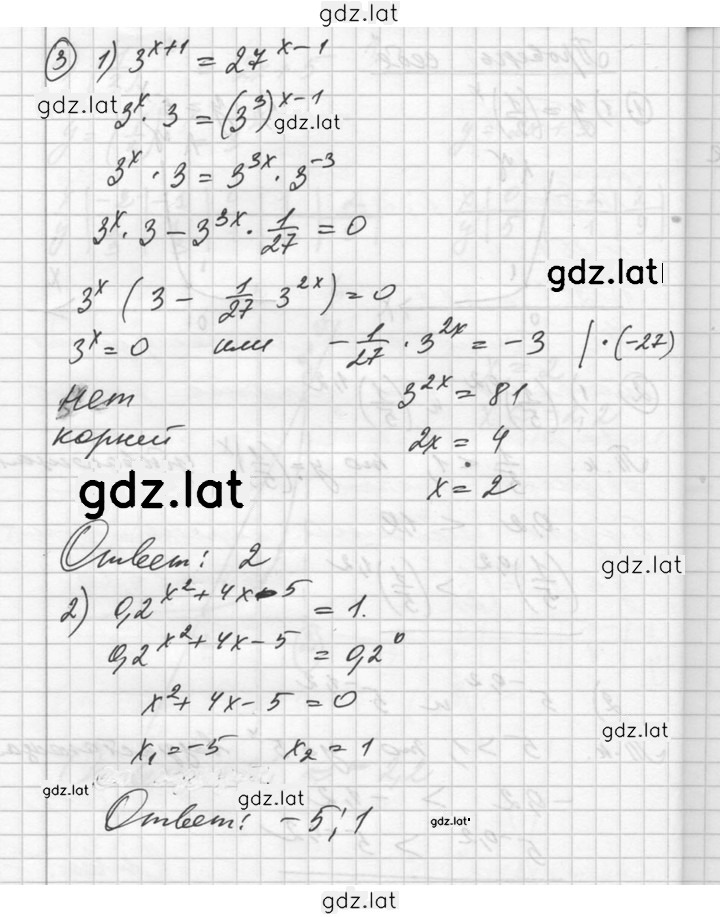 gdz.lat
③ 1) 3^{x+1} = 27^{x-1}
gdz.lat
3^x · 3 = (3^3)^{x-1}
gdz.lat
3^x · 3 = 3^{3x} · 3^{-3}
3^x · 3 - 3^{3x} · 1/27 = 0
gdz.lat
3^x (3 - 1/27 3^{2x}) = 0
3^x = 0 или -1/27 · 3^{2x} = -3 | · (-27)
нет 3^{2x} = 81
корней 2x = 4
gdz.lat
x = 2
Ответ: 2
gdz.lat
2) 0,2^{x^2+4x-5} = 1.
0,2^{x^2+4x-5} = 0,2^0
x^2 + 4x - 5 = 0
gdz.lat
x_1 = -5 x_2 = 1
gdz.lat
gdz.lat
Ответ: -5; 1
gdz.lat
gdz.lat